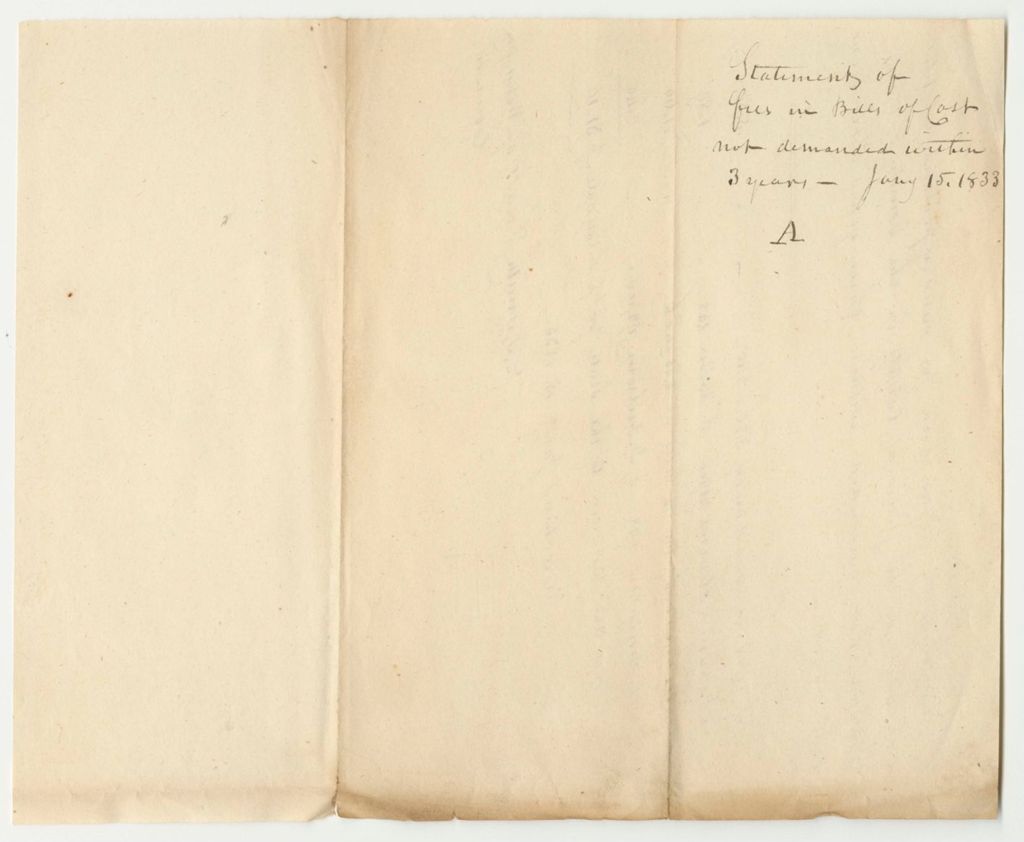 Statements of
fees in Bills of Cost
not demanded within
3 years — Jany 15. 1833
A